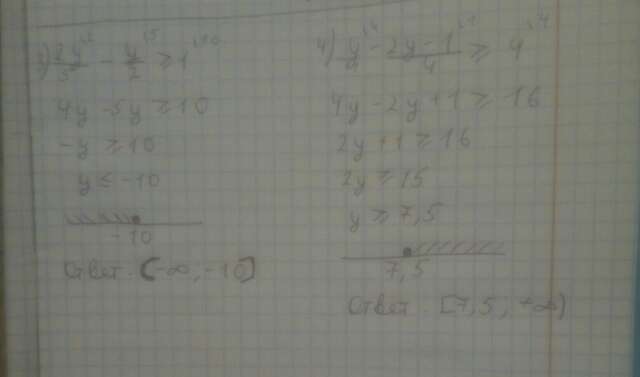 3) 2y/5 ^2 - y/2 ^5 ≥ 1 ^10
4y - 5y ≥ 10
-y ≥ 10
y ≤ -10
-10
Ответ: (-∞; -10]
4) y ^4 - 2y-1/4 ^1 ≥ 4 ^4
4y - 2y + 1 ≥ 16
2y + 1 ≥ 16
2y ≥ 15
y ≥ 7,5
7,5
Ответ: [7,5; +∞)